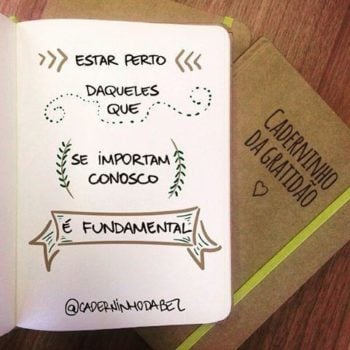 ESTAR PERTO
DAQUELES
QUE
SE IMPORTAM
CONOSCO
É FUNDAMENTAL
@CADERNINHODABEL
CADERNINHO
DA GRATIDÃO